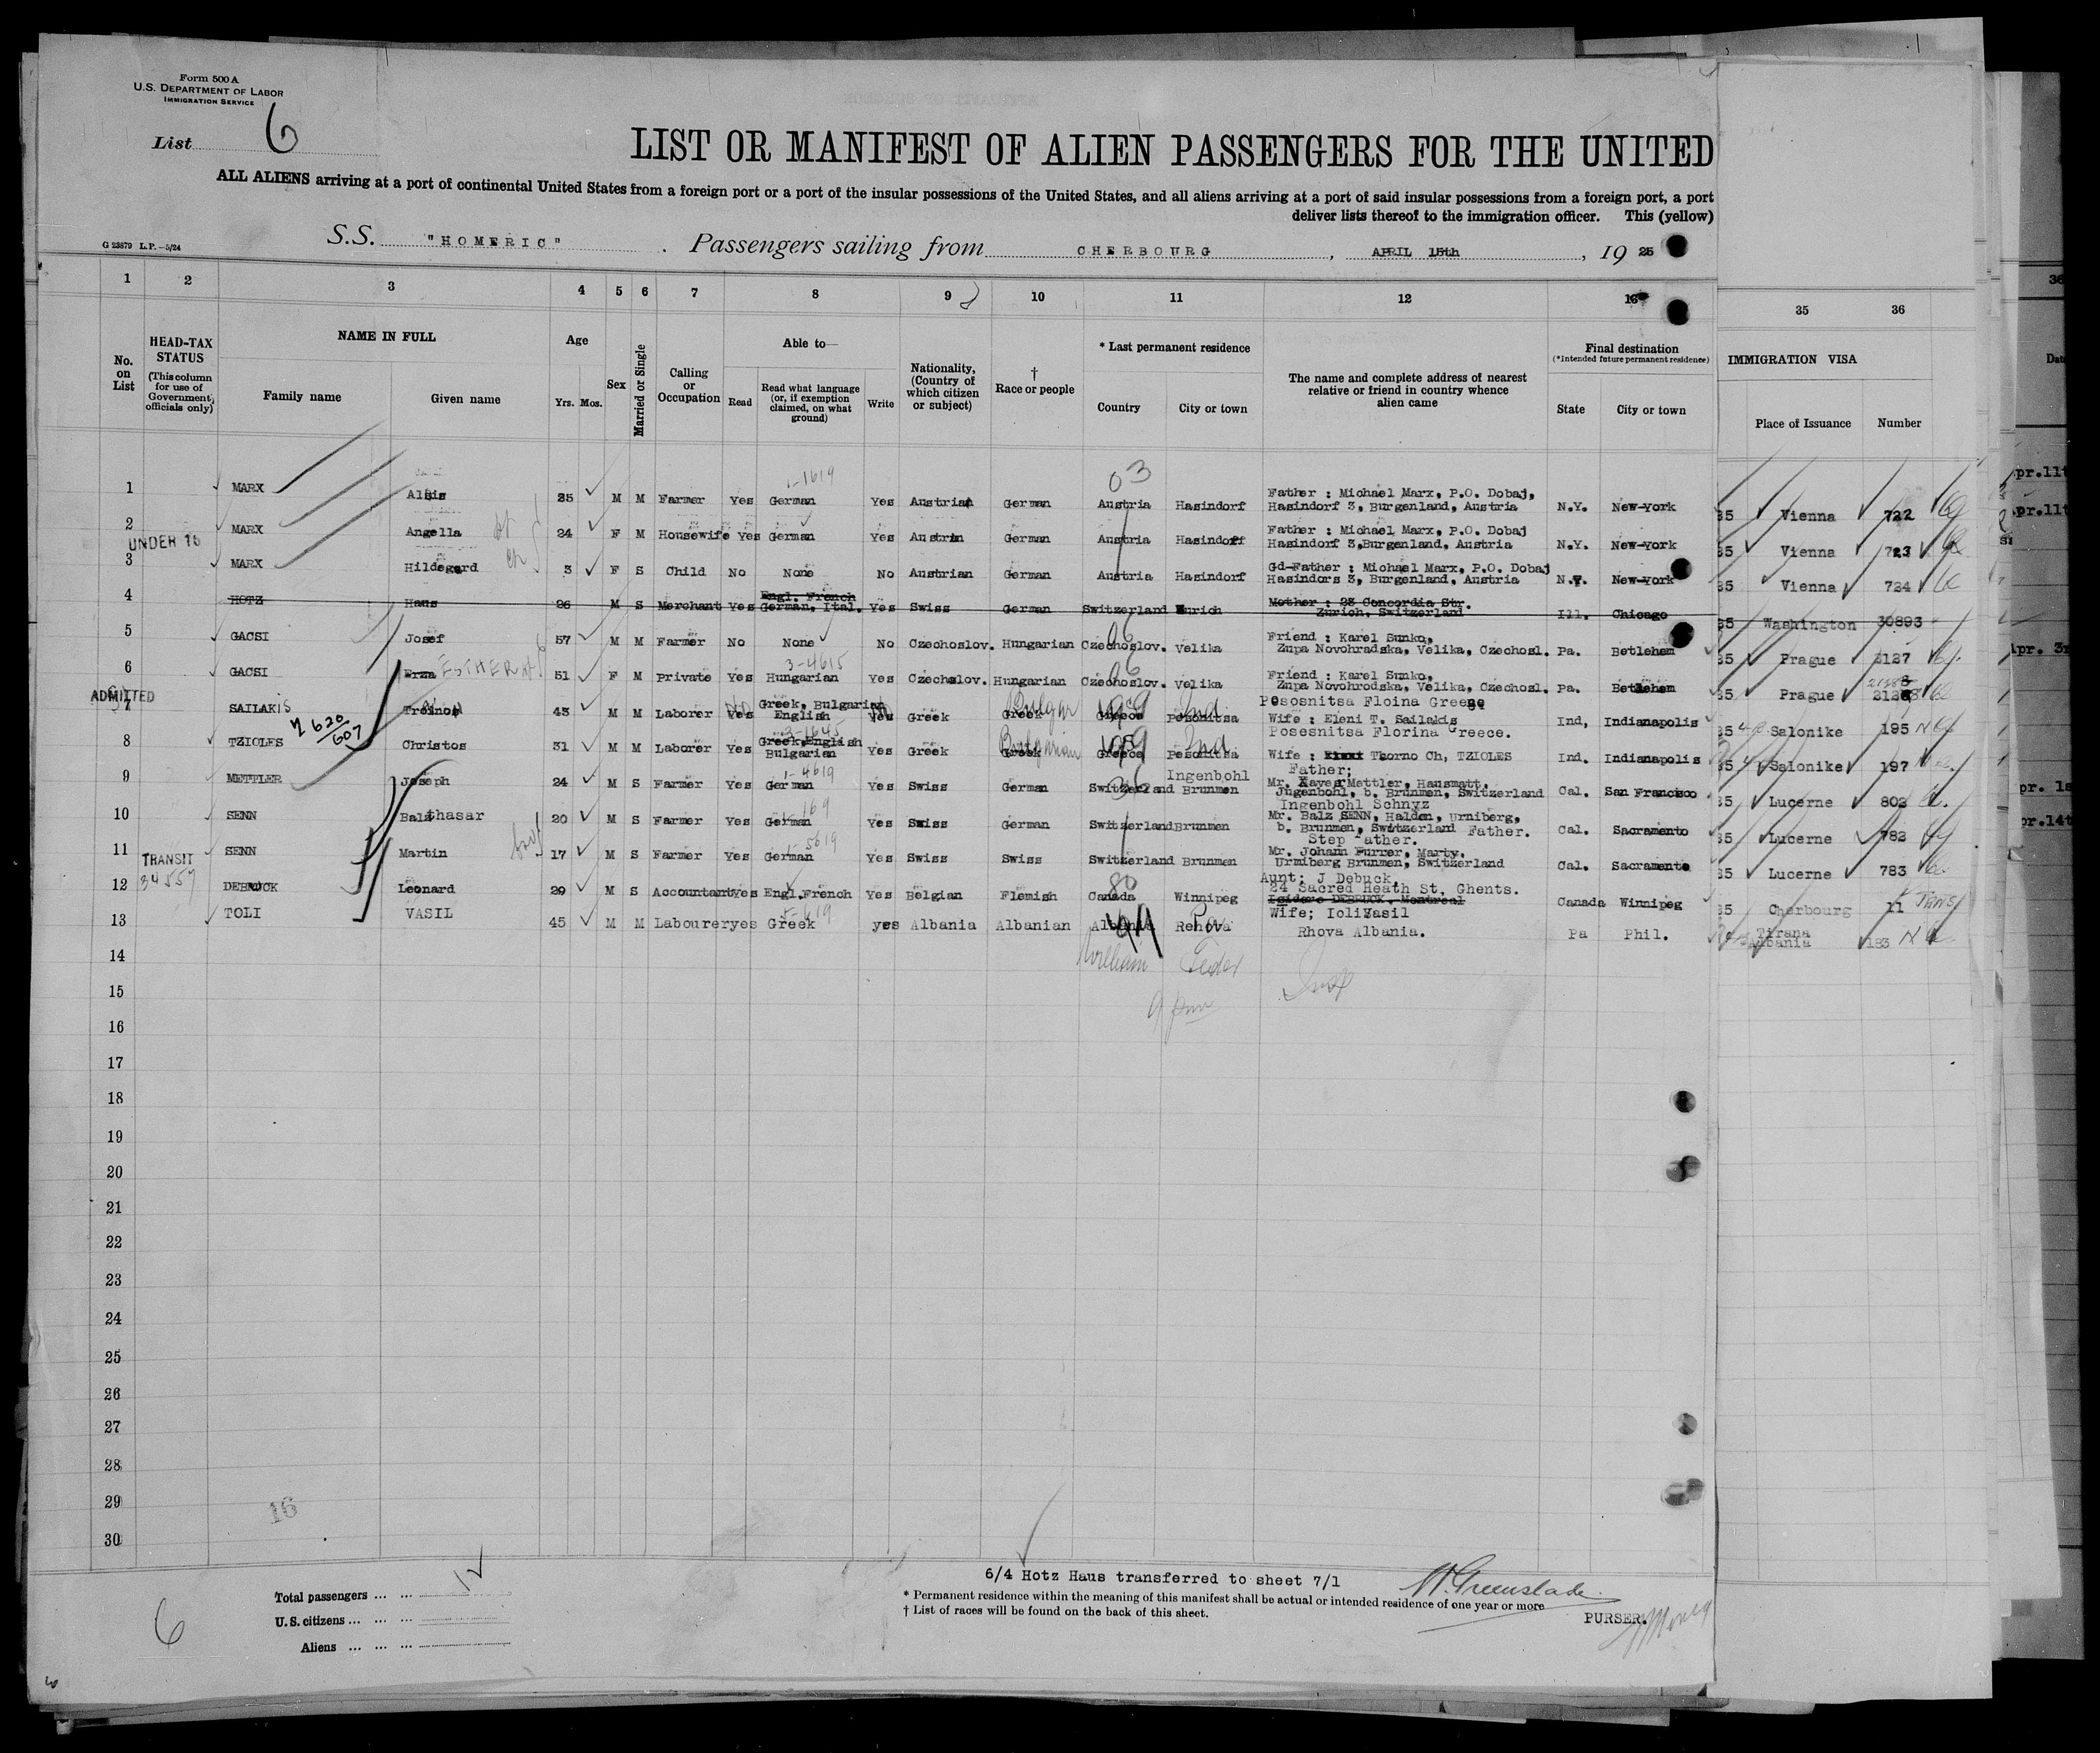 Form 500 A
U.S. DEPARTMENT OF LABOR
IMMIGRATION SERVICE
List 6
LIST OR MANIFEST OF ALIEN PASSENGERS FOR THE UNITED
ALL ALIENS arriving at a port of continental United States from a foreign port or a port of the insular possessions of the United States, and all aliens arriving at a port of said insular possessions from a foreign port, a port
deliver lists thereof to the immigration officer. This (yellow)
G 23879 L.P.—5/24
S.S. "HOMERIC" . Passengers sailing from CHERBOURG, APRIL 15th, 19 25
1 2 3 4 5 6 7 8 9 10 11 12 35 36
No. on List
HEAD-TAX STATUS (This column for use of Government officials only)
NAME IN FULL
Family name Given name
Age Yrs. Mos.
Sex
Married or Single
Calling or Occupation
Able to—
Read Read what language (or, if exemption claimed, on what ground) Write
Nationality, (Country of which citizen or subject)
† Race or people
* Last permanent residence
Country City or town
The name and complete address of nearest relative or friend in country whence alien came
Final destination
(*Intended future permanent residence)
State City or town
IMMIGRATION VISA
Place of Issuance Number
03
1-1619
Father : Michael Marx, P.O. Dobaj,
1 MARX 35 M M Farmer Yes German Yes Austrian German Austria Hasindorf Hasindorf 3, Burgenland, Austria N.Y. New-york 85 Vienna 722
Father : Michael Marx, P.O. Dobaj
2 MARX Angella 24 F M Housewife Yes German Yes German Austria Hasindorf Hasindorf 3,Burgenland, Austria N.Y. New-york 85 Vienna 723
UNDER 16
Gd-Father : Michael Marx, P.O. Dobaj
3 MARX Hildegard 3 F S Child No None No Austrian German Austria Hasindorf Hasindors 3, Burgenland, Austria N.Y. New-york 85 Vienna 724
Engl. French Mother : 23 Concordia Str.
4 HOTZ Haus 26 M S Merchant Yes German, Ital. Yes Swiss German Switzerland Zurich Zurich, Switzerland Ill. Chicago 85 Washington 30893
Friend : Karel Sunko,
5 GACSI Josef 57 M M Farmer No None No Czechoslov. Hungarian Czechoslov. Velika Zupa Novohradska, Velika, Czechosl. Pa. Betlehem 85 Prague 2127
3-4615 Friend : Karel Sunko,
6 GACSI Erza ESTHER 51 F M Private Yes Hungarian Yes Czechoslov. Hungarian Czechoslov. Velika Zupa Novohrodska, Velika, Czechosl. Pa. Betlehem 85 Prague 2128
ADMITTED
Greek, Bulgarian Bulgar Pososnitsa Floina Greece
7 SAILAKIS 43 M M Laborer Yes English Yes Greek Greek Greece Posonitsa Wife : Eleni T. Sailakis Ind, Indianapolis 85 Salonike 195
Posesnitsa Florina Greece.
Greek,English Bulgarian
8 TZIOLES Christos 31 M M Laborer Yes Bulgarian Yes Greek Greek Greece Posonitsa Wife : Thorno Ch, TZIOLES Ind. Indianapolis 85 Salonike 197
1-4619 Ingenbohl Father;
9 METTLER Joseph 24 M S Farmer Yes German Yes Swiss German Switzerland Brunmen Mr. Xaver Mettler, Hausmatt, Cal. San Francisco 85 Lucerne 802
Jugenbohl, b. Brunmen, Switzerland
Ingenbohl Schnyz
10 SENN Balthasar 20 M S Farmer Yes German Yes Swiss German Switzerland Brunmen Mr. Balz SENN, Halden, Urniberg, Cal. Sacramento 85 Lucerne 782
b. Brunmen, Switzerland Father.
Step Father.
11 SENN Martin 17 M S Farmer Yes German Yes Swiss Swiss Switzerland Brunmen Mr. Johann Furrer, Marty, Cal. Sacramento 85 Lucerne 783
Urmiberg Brunmen, Switzerland
TRANSIT
34557
Aunt; J Debuck,
12 DEBRUCK Leonard 29 M S Accountant yes Engl.French Yes Belgian Flemish Canada Winnipeg 24 Sacred Heath St, Ghents. Canada Winnipeg 85 Cherbourg 11
Isidore DEBRUCK, Montreal
13 TOLI VASIL 45 M M Labourer yes Greek yes Albania Albanian Albania Wife; Ioli Vasil Pa Phil. Tirana Albania 183
Rhova Albania.
14
15 9 pm
16
17
18
19
20
21
22
23
24
25
26
27
28
29
30
16
Total passengers ... ... 12
U.S. citizens ... ... ...
Aliens ... ... ...
6
6/4 Hotz Haus transferred to sheet 7/1
* Permanent residence within the meaning of this manifest shall be actual or intended residence of one year or more
† List of races will be found on the back of this sheet.
W. Greenslade
PURSER.